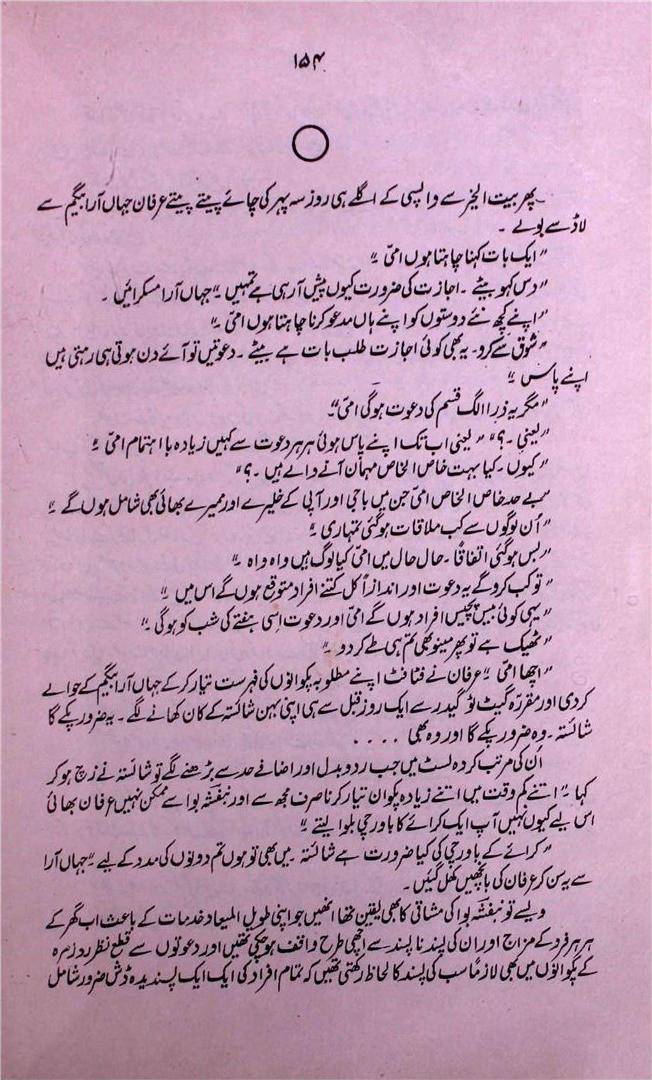 ۱۵۴
پھر بیت الخیر سے واپسی کے اگلے ہی روز سہ پہر کی چائے پیتے پیتے عرفان جہاں آرا بیگم سے
لاڈ سے بولے ۔
"ایک بات کہنا چاہتا ہوں امّی ۔"
"دس کہو بیٹے ۔ اجازت کی ضرورت کیوں پیش آرہی ہے تمہیں ۔" جہاں آرا مسکرائیں ۔
"اپنے کچھ نئے دوستوں کو اپنے ہاں مدعو کرنا چاہتا ہوں امّی ۔"
"شوق سے کرو ۔ یہ بھی کوئی اجازت طلب بات ہے بیٹے ۔ دعوتیں تو آئے دن ہوتی ہی رہتی ہیں
اپنے پاس ۔"
"مگر یہ ذرا الگ قسم کی دعوت ہوگی امّی ۔"
"یعنی ۔ ؟" "یعنی اب تک اپنے پاس ہوئی ہر ہر دعوت سے کہیں زیادہ با اہتمام امّی ۔"
"کیوں ۔ کیا بہت خاص الخاص مہمان آنے والے ہیں ۔ ؟"
"بے حد خاص الخاص امّی جن میں باجی اور آپی کے خلیرے اور ممیرے بھائی بھی شامل ہوں گے ۔"
"اُن لوگوں سے کب ملاقات ہوگئی تمہاری ۔"
"بس ہوگئی اتفاقاً ۔ حال حال میں امّی کیا لوگ ہیں واہ واہ ۔"
"تو کب کرو گے یہ دعوت اور اندازاً کل کتنے افراد متوقع ہوں گے اس میں ۔"
"یہی کوئی بیس پچیس افراد ہوں گے امّی اور دعوت اسی ہفتے کی شب کو ہوگی ۔"
"ٹھیک ہے تو پھر مینو بھی تم ہی طے کر دو ۔"
"اچھا امّی ۔" عرفان نے فٹافٹ اپنے مطلوبہ پکوانوں کی فہرست تیار کر کے جہاں آرا بیگم کے حوالے
کر دی اور مقررہ گیٹ ٹو گیدر سے ایک روز قبل سے ہی اپنی بہن شائستہ کے کان کھانے لگے ۔ یہ ضرور پکے گا
شائستہ ۔ وہ ضرور پکے گا اور وہ بھی ۔ ۔ ۔ ۔
اُن کی مرتب کردہ لسٹ میں جب ردو بدل اور اضافے حد سے بڑھنے لگے تو شائستہ نے زچ ہو کر
کہا ۔" اتنے کم وقت میں اتنے زیادہ پکوان تیار کرنا صرف مجھ سے اور بنفشہ بوا سے ممکن نہیں عرفان بھائی
اس لیے کیوں نہیں آپ ایک کرائے کا باورچی بلوا لیتے ۔"
"کرائے کے باورچی کی کیا ضرورت ہے شائستہ ۔ میں بھی تو ہوں تم دونوں کی مدد کے لیے ۔" جہاں آرا
سے یہ سن کر عرفان کی باچھیں کھل گئیں ۔
ویسے تو بنفشہ بوا کی مشاقی کا بھی یقین تھا انھیں جو اپنی طویل المیعاد خدمات کے باعث اب گھر کے
ہر ہر فرد کے مزاج اور ان کی پسند نا پسند سے اچھی طرح واقف ہو چکی تھیں اور دعوتوں سے قطع نظر روزمرہ
کے پکوانوں میں بھی لازماً سب کی پسند کا لحاظ رکھتی تھیں کہ تمام افراد کی ایک ایک پسندیدہ ڈش ضرور شامل